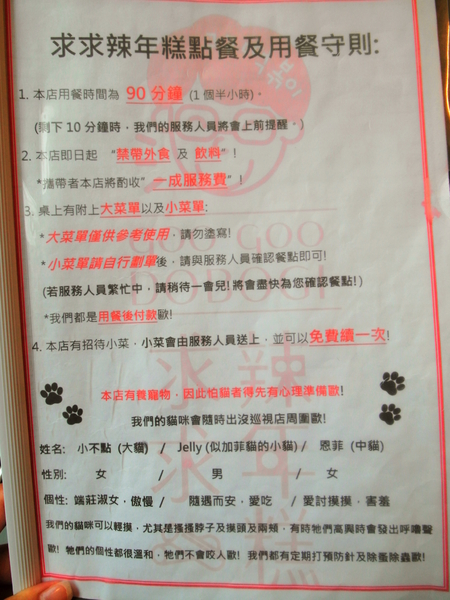 求求辣年糕點餐及用餐守則:
1. 本店用餐時間為 90 分鐘 (1 個半小時)。
(剩下 10 分鐘時，我們的服務人員將會上前提醒。)
2. 本店即日起 “禁帶外食 及 飲料”!
*攜帶者本店將酌收“ 一成服務費”!
3. 桌上有附上大菜單以及小菜單:
*大菜單僅供參考使用，請勿塗寫!
*小菜單請自行劃單後，請與服務人員確認餐點即可!
(若服務人員繁忙中，請稍待一會兒!將會盡快為您確認餐點!)
*我們都是用餐後付款歐!
4. 本店有招待小菜，小菜會由服務人員送上，並可以免費續一次!
GOO GOO
DOBOGI
求辣
求年
糕
本店有養寵物，因此怕貓者得先有心理準備歐!
我們的貓咪會隨時出沒巡視店周圍歐!
姓名: 小不點 (大貓) / Jelly (似加菲貓的小貓) / 恩菲 (中貓)
性別: 女 / 男 / 女
個性: 端莊淑女，傲慢 / 隨遇而安，愛吃 / 愛討摸摸，害羞
我們的貓咪可以輕摸，尤其是搔搔脖子及摸頭及兩頰，有時牠們高興時會發出呼嚕聲
歐! 牠們的個性都很溫和，牠們不會咬人歐! 我們都有定期打預防針及除蚤除蟲歐!